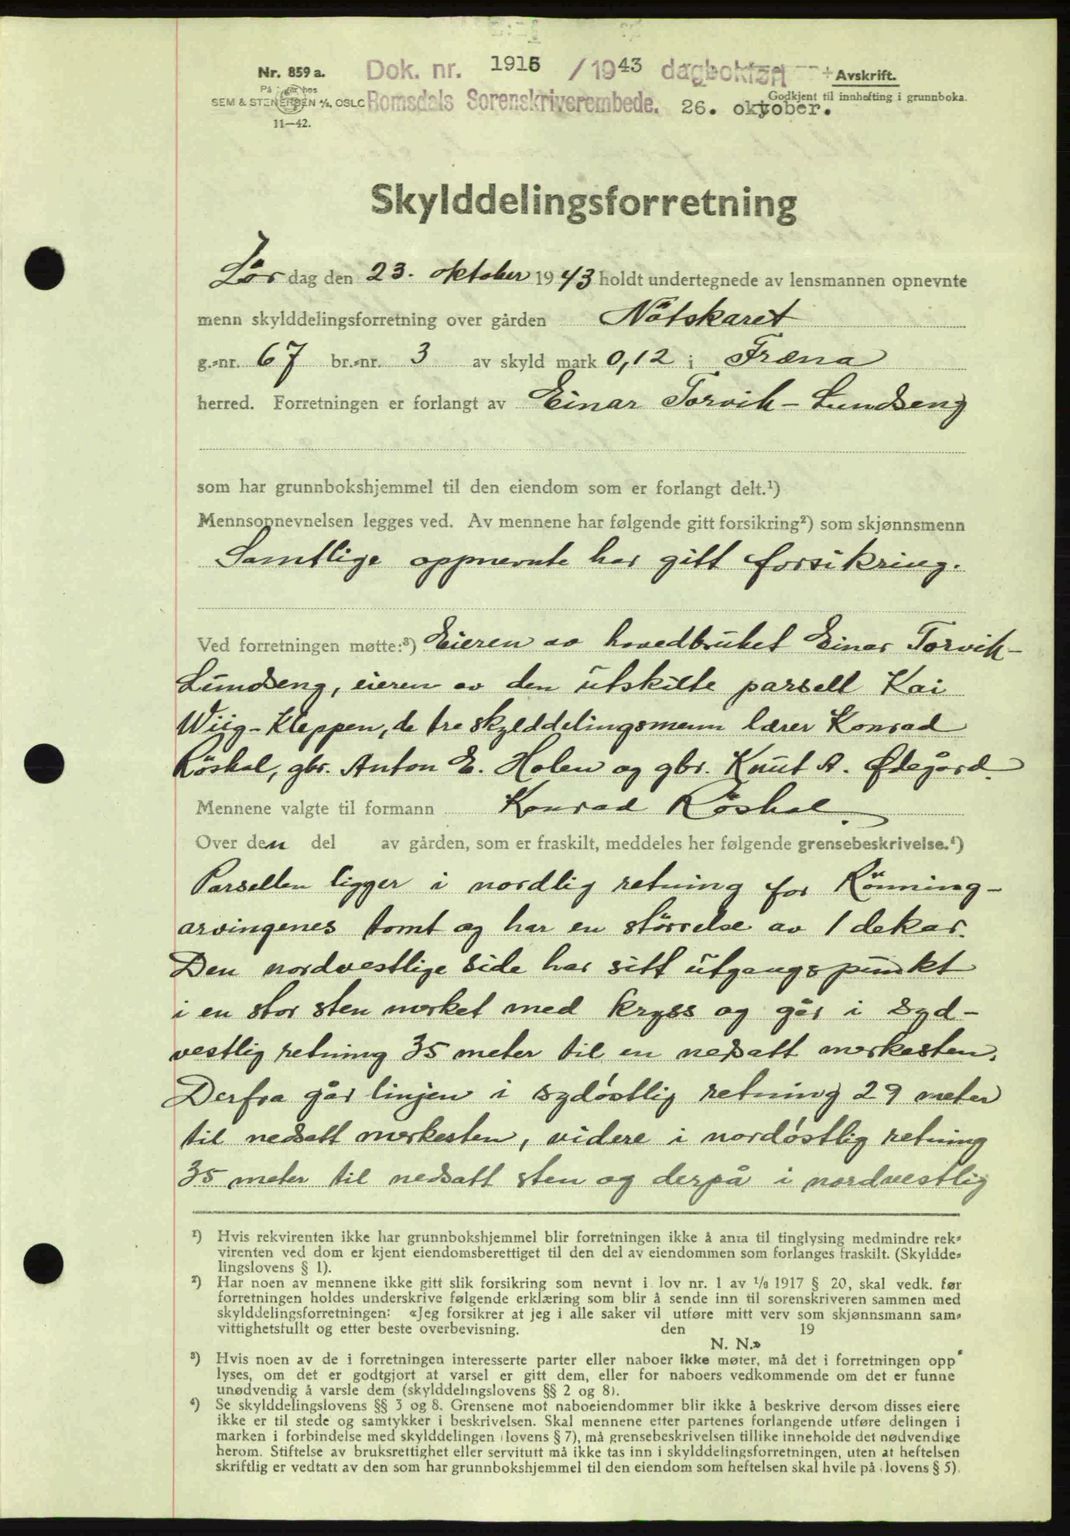 Nr. 859 a.
På lager hos
SEM & STENERSEN A/S, OSLO
11—42.
Dok. nr. 1915 /1943 dagbokført
Romsdals Sorenskriverembede. 26. oktober.
Avskrift.
Godkjent til innhefting i grunnboka.
Skylddelingsforretning
Lör dag den 23. oktober 1943 holdt undertegnede av lensmannen opnevnte
menn skylddelingsforretning over gården Nötskaret
g.-nr. 67 br.-nr. 3 av skyld mark 0,12 i Fræna
herred. Forretningen er forlangt av Einar Torvik-Lundseng
som har grunnbokshjemmel til den eiendom som er forlangt delt.¹)
Mennsopnevnelsen legges ved. Av mennene har følgende gitt forsikring²) som skjønnsmenn
Samtlige oppnevnte har gitt forsikring.
Ved forretningen møtte:³) Eieren av hovedbruket Einar Torvik-
Lundseng, eieren av den utskilte parsell Kai
Wiig-Kleppen, de tre skylddelingsmenn lærer Konrad
Röskal, gbr. Anton E. Holen og gbr. Knut A. Ødegård.
Mennene valgte til formann Konrad Röskal.
Over den del av gården, som er fraskilt, meddeles her følgende grensebeskrivelse.⁴)
Parsellen ligger i nordlig retning for Rönning-
arvingenes tomt og har en störrelse av 1 dekar.
Den nordvestlige side har sitt utgangspunkt
i en stor sten merket med kryss og går i syd-
vestlig retning 35 meter til en nedsatt merkesten.
Derfra går linjen i sydóstlig retning 29 meter
til nedsatt merkesten, videre i nordóstlig retning
35 meter til nedsatt sten og derpå i nordvestlig
¹) Hvis rekvirenten ikke har grunnbokshjemmel blir forretningen ikke å anta til tinglysing medmindre rek-
virenten ved dom er kjent eiendomsberettiget til den del av eiendommen som forlanges fraskilt. (Skyldde-
lingslovens § 1).
²) Har noen av mennene ikke gitt slik forsikring som nevnt i lov nr. 1 av 1/8 1917 § 20, skal vedk. før
forretningen holdes underskrive følgende erklæring som blir å sende inn til sorenskriveren sammen med
skylddelingsforretningen: «Jeg forsikrer at jeg i alle saker vil utføre mitt verv som skjønnsmann sam-
vittighetsfullt og etter beste overbevisning. den 19
N. N.»
³) Hvis noen av de i forretningen interesserte parter eller naboer ikke møter, må det i forretningen opp-
lyses, om det er godtgjort at varsel er gitt dem, eller for naboers vedkommende om det er funne
unødvendig å varsle dem (skylddelingslovens §§ 2 og 8).
⁴) Se skylddelingslovens §§ 3 og 8. Grensene mot naboeiendommer blir ikke å beskrive dersom disses eiere
ikke er til stede og samtykker i beskrivelsen. Skal mennene etter partenes forlangende utføre delingen i
marken i forbindelse med skylddelingen (lovens § 7), må grensebeskrivelsen tillike inneholde det nødvendige
herom. Stiftelse av bruksrettighet eller servitutt må ikke tas inn i skylddelingsforretningen, uten at heftelsen
skriftlig er vedtatt av den som har grunnbokshjemmel til den eiendom som heftelsen skal hvile på (lovens § 5).